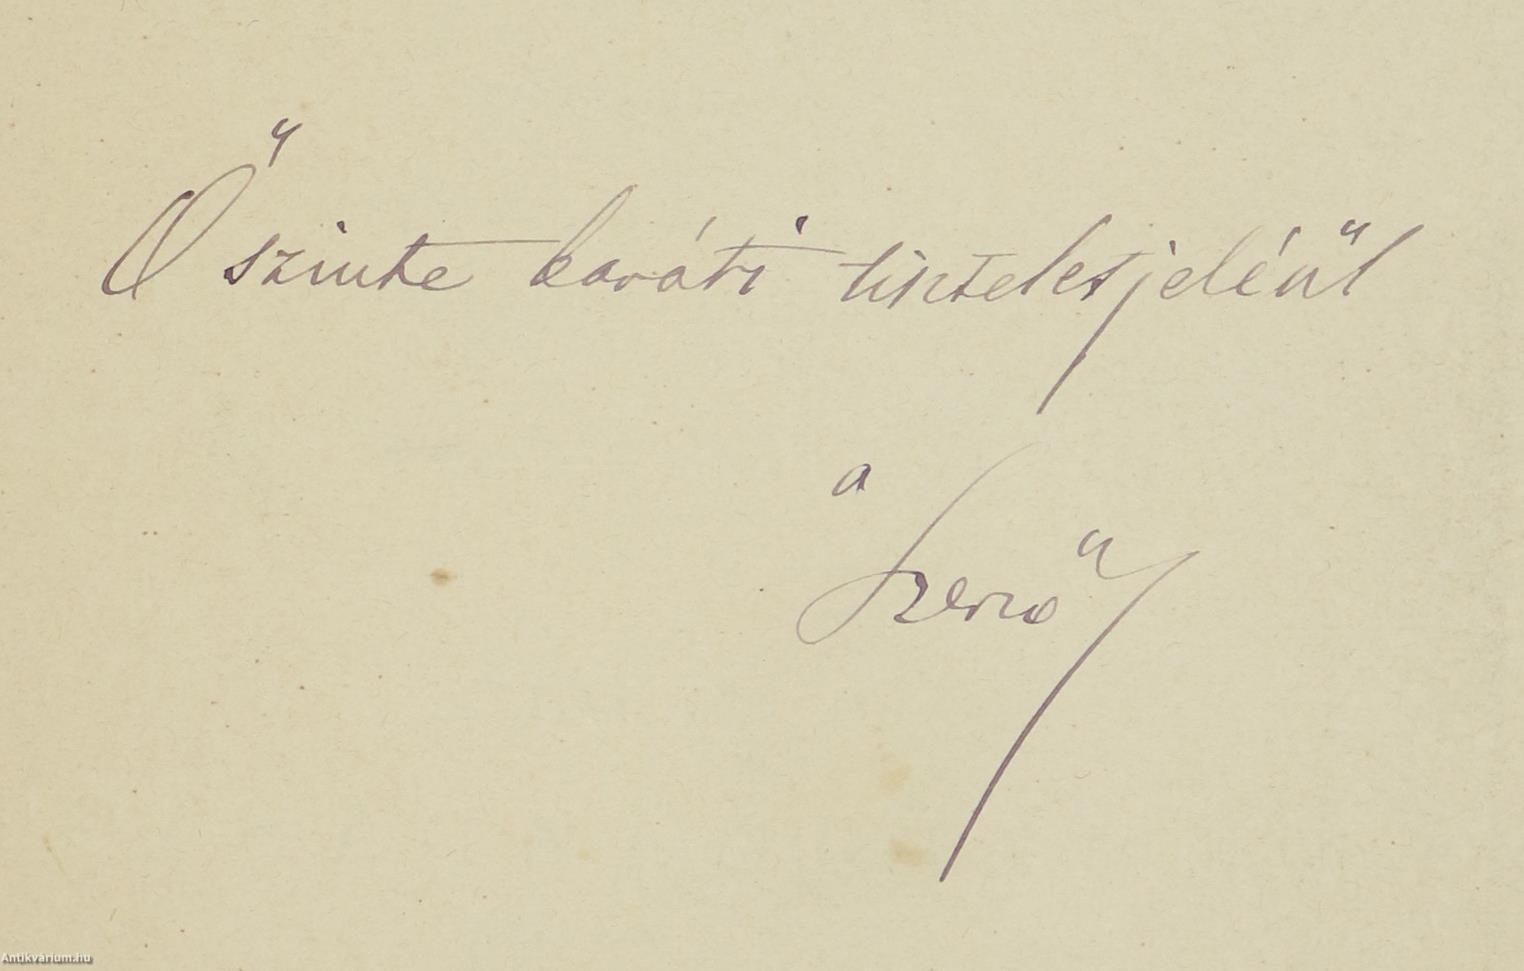 Őszinte baráti tisztelet jeléül
a
Szerző
Antikvarium.hu